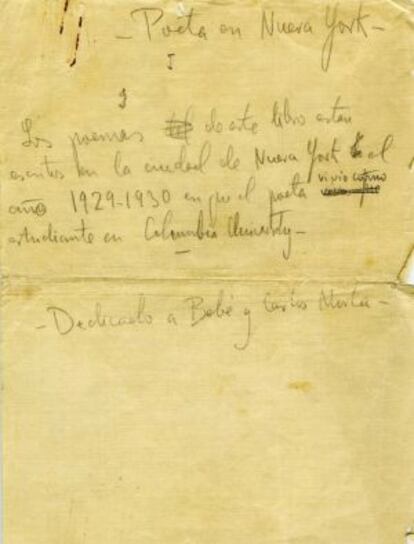 - Poeta en Nueva York -
I
Los poemas de este libro estan
escritos en la ciudad de Nueva York el
año 1929-1930 en que el poeta vivio como
estudiante en Columbia University -
- Dedicado a Bebé y Carlos Morla -